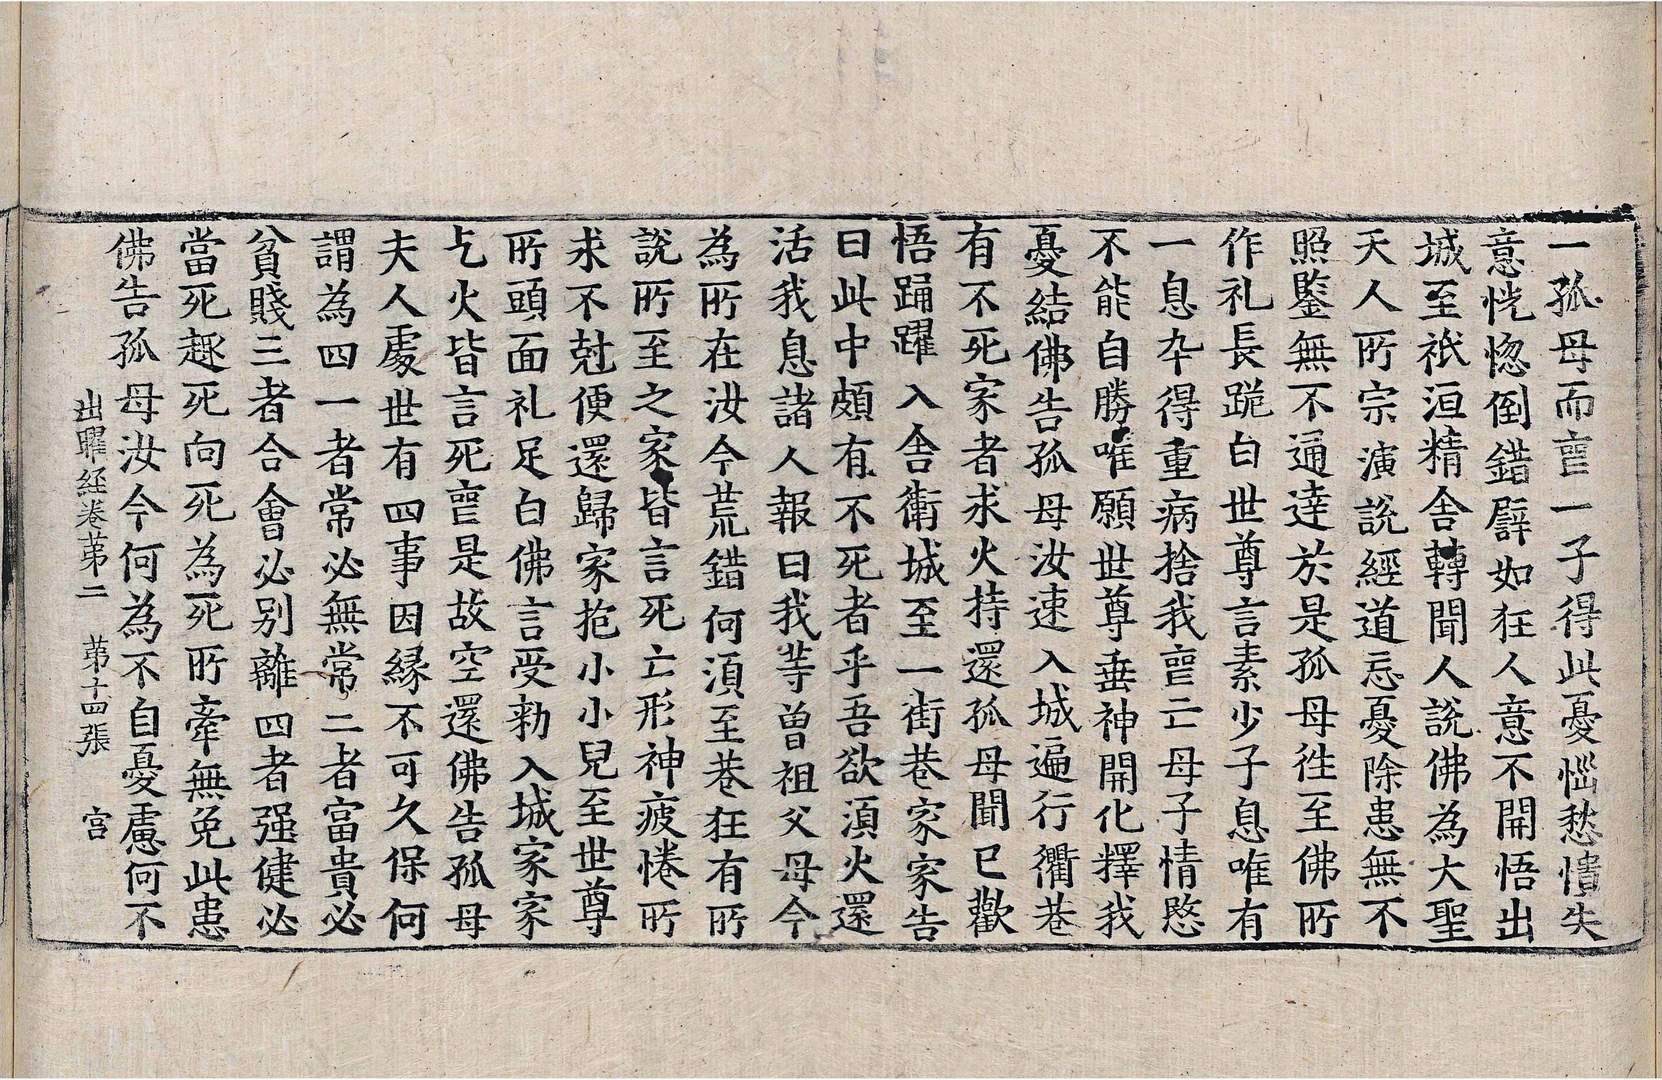 一孤母而喪一子得此憂惱愁憒失
意恍惚倒錯譬如狂人意不開悟出
城至祇洹精舍轉聞人說佛為大聖
天人所宗演說經道忘憂除患無不
照鑒無不通達於是孤母往至佛所
作礼長跪白世尊言素少子息唯有
一息卒得重病捨我喪亡母子情愍
不能自勝唯願世尊垂神開化釋我
憂結佛告孤母汝速入城遍行衢巷
有不死家者求火持還孤母聞已歡
悟踊躍入舍衛城至一街巷家家告
曰此中頗有不死者乎吾欲須火還
活我息諸人報曰我等曾祖父母今
為所在汝今荒錯何須至巷狂有所
說所至之家皆言死亡形神疲惓所
求不尅便還歸家抱小小兒至世尊
所頭面礼足白佛言受勑入城家家
乞火皆言死喪是故空還佛告孤母
夫人處世有四事因緣不可久保何
謂為四一者常必無常二者富貴必
貧賤三者合會必別離四者强健必
當死趣死向死為死所牽無免此患
佛告孤母汝今何為不自憂慮何不
出曜經卷苐二 苐十四張 宮